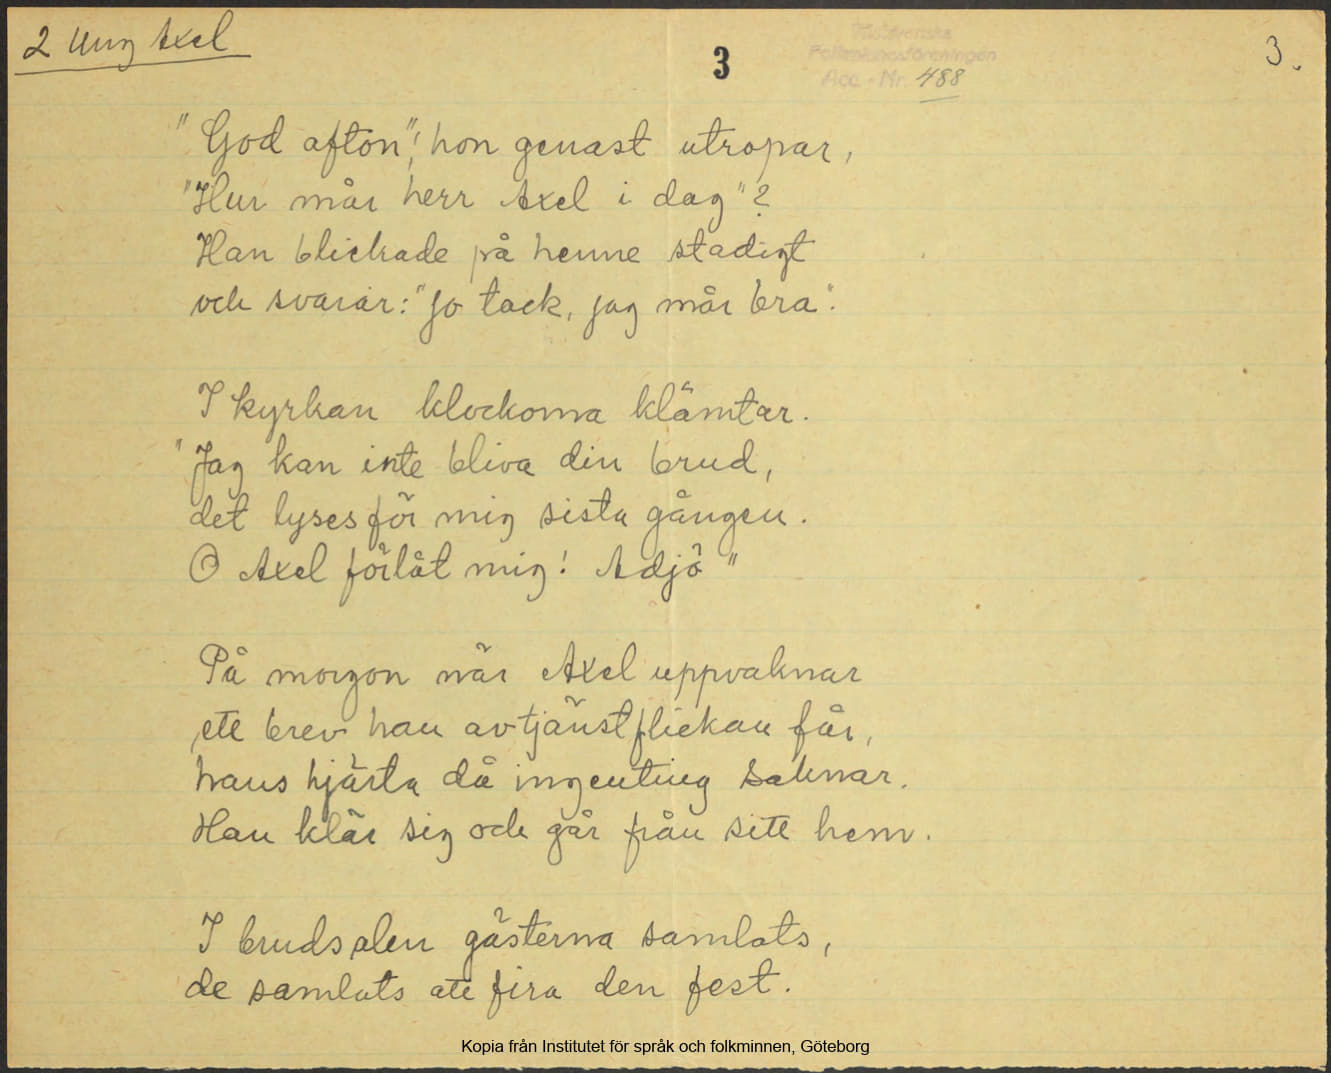 2 Ung Axel
3
Västsvenska
Folkminnesföreningen
Acc.-Nr. 488
3.
"God afton", hon genast utropar,
"Hur mår herr Axel i dag"?
Han blickade på henne stadigt
och svarar: "Jo tack, jag mår bra".
I kyrkan klockorna klämtar.
"Jag kan inte bliva din brud,
det lyses för mig sista gången.
O Axel förlåt mig! Adjö"
På morgon när Axel uppvaknar
ett brev han av tjänstflickan får,
hans hjärta då ingenting saknar.
Han klär sig och går från sitt hem.
I brudsalen gästerna samlats,
de samlats att fira den fest.
Kopia från Institutet för språk och folkminnen, Göteborg